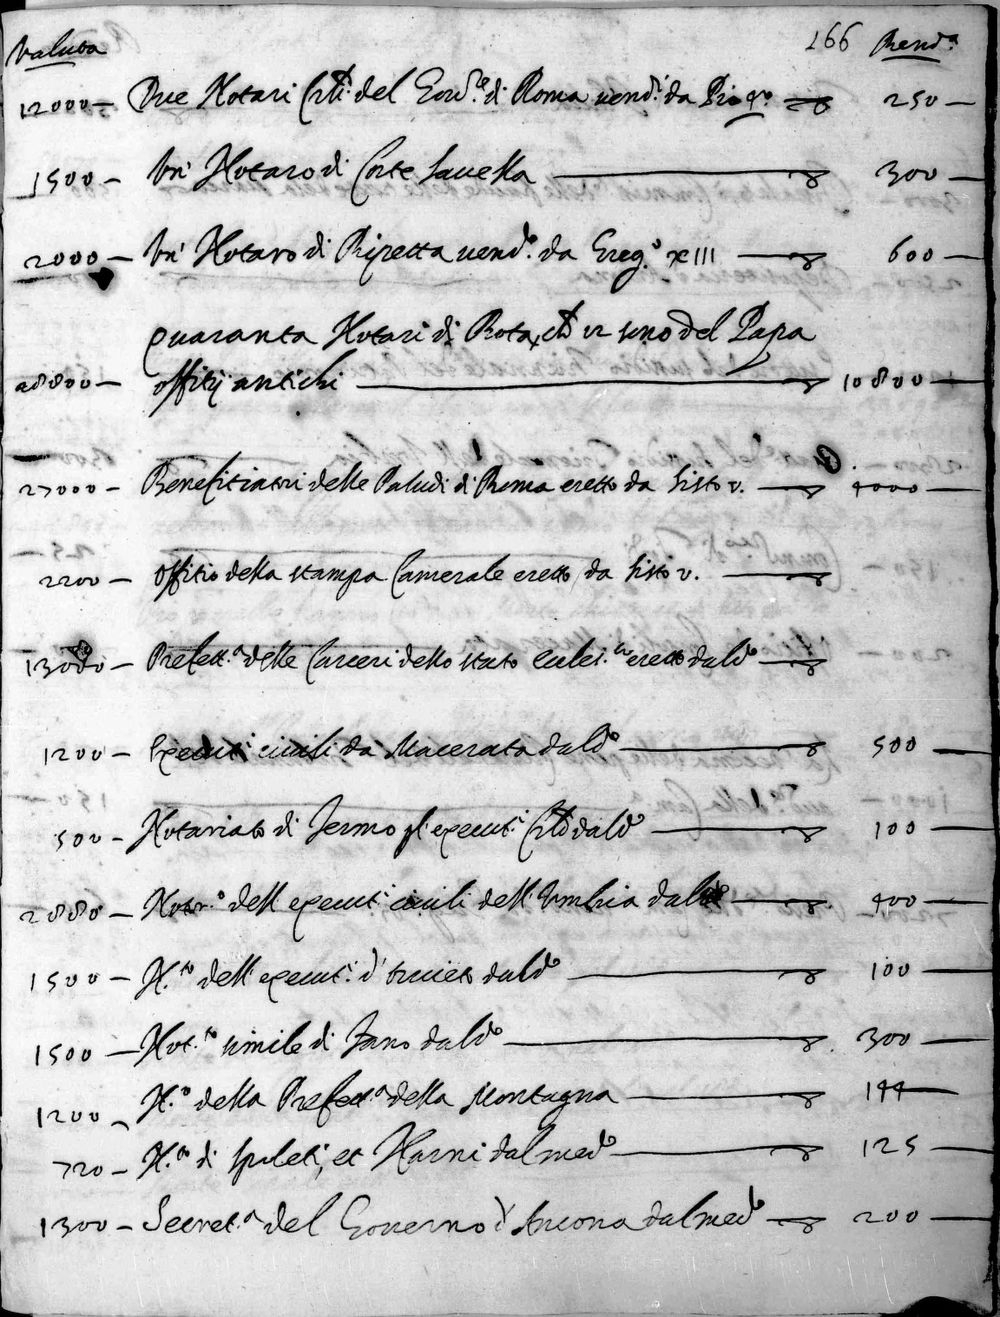 Valuta 166 Rend.ª
12000 – Due Notari Crti. del Gov.re di Roma vend.i da Pio 4.º 250 –
1500 – Un' Notaro di Corte Savella 300 –
2000 – Un' Notaro di Ripetta vend.º da Greg.º XIII 600 –
quaranta Notari di Rota, ch' è uno del Papa
48800 – offitij antichi 10800 –
27000 – Benefitiatori delle Paludi di Roma eretto da Sisto V. 4000 –
2200 – Offitio della stampa Camerale eretto da Sisto V.
13000 – Prefett.ª delle Carceri dello stato eccles.co eretto dal d.º
1200 – Executi civili da Macerata dal d.º 500 –
500 – Notariato di Fermo pl' executi Crti dal d.º 100 –
2000 – Notr.º dell' execut.i civili dell' Umbria dal d.º 400 –
1500 – N.to dell' execut.i d' Orvieto dal d.º 100 –
1500 – Not.to simile di Fano dal d.º 300 –
1200 – N.º della Prefett.ª della Montagna 144
720 – N.to di Spoleti, et Narni dal med.º 125
1300 – Secret.ª del Governo d' Ancona dal med.º 200 –